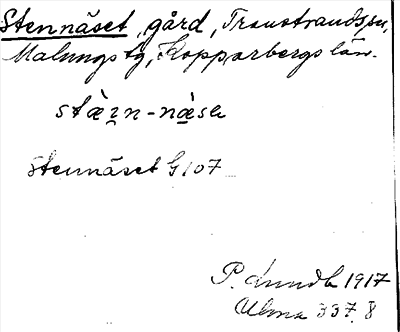 Stennäset, gård, Transtrands sn,
Malungs tg, Kopparbergs län.
stæ̀i̯n-næ̀sɛ
Stennäset G107
P. Lundh 1917
Ulma 337.8